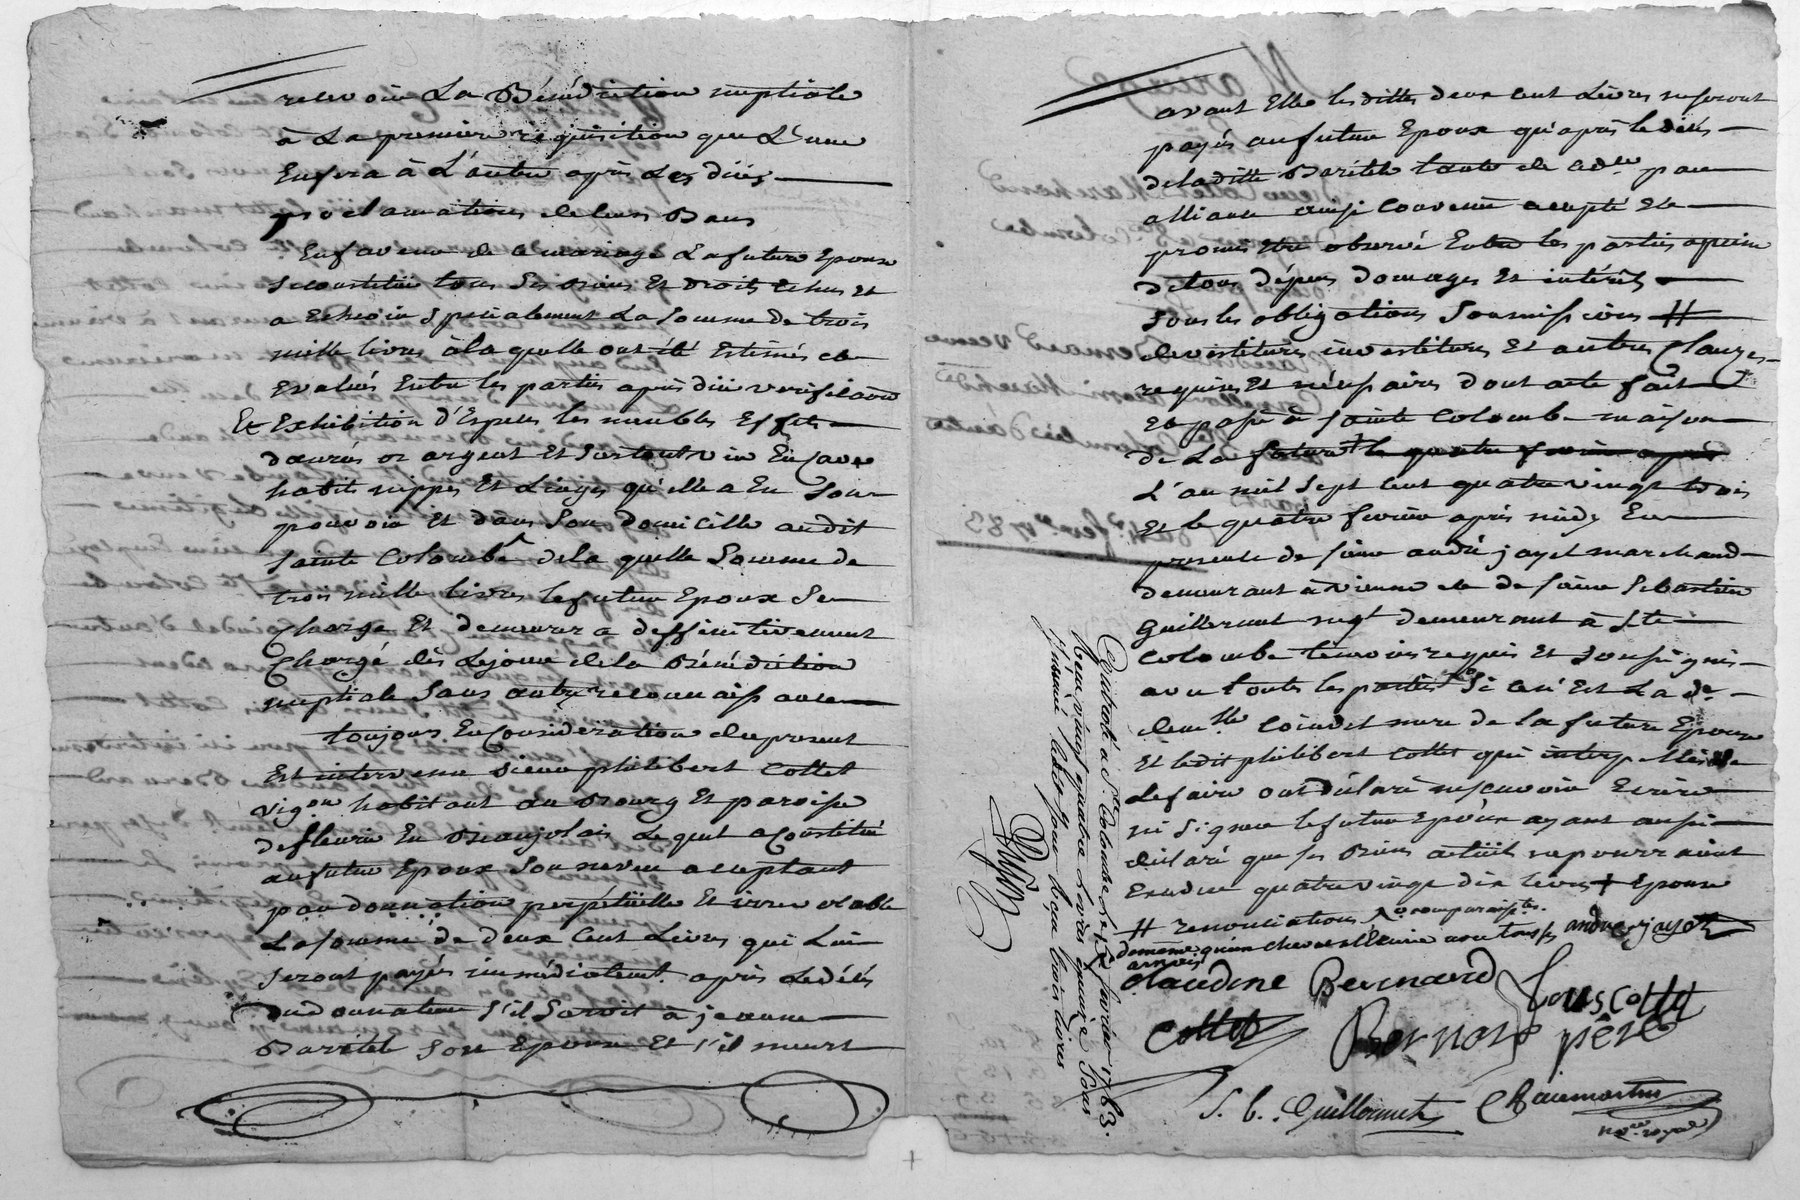 recevoir La Bénédiction nuptiale
à La premiere réquisition que L'une
En fera à L'autre après Les dües
proclamations de leurs Bans
En faveur de ce mariage La future Epouse
se constitüe tous ses Biens Et Droits Echus et
a Echeoir spécialement La somme de trois
mille livres à la quelle ont été Estimés et
Evalués Entre les parties après düe verification
Et Exhibition d'Especes les meubles Effets
danrés or argent Et surtout vin En Cave
habits nippes Et Linges qu'elle a En son
pouvoir Et dans son domicille audit
sainte Colombe de la quelle somme de
trois mille livres le futur Epoux se
Charge Et demeurera deffinitivement
Chargé dès Le jour de la Bénédiction
nuptiale sans autre reconnaissance
toujours En Considération du present
Est intervenu sieur philibert Collet
vig.on habitant au Bourg Et paroisse
de fleurie En Beaujolais Lequel a Constitué
au futur Epoux son neveu acceptant
par donnation perpétüelle Et irrevocable
La somme de deux Cent Livres qui Lui
seront payés immédiatement après Le décès
du donnateur s'il survit à jeanne
Baritel son Epouse Et s'il meurt
avant Elle lesdittes deux cent Livres ne seront
payés au futur Epoux qu'après le décès
de laditte Baritel tante de par
alliance ainsi Convenu accepté Et
promis Etre observé Entre les parties a peine
de tous dépens Domages Et intérêts
sous les obligations soumissions #
devestitures investitures Et autres Clauzes
requises Et nécessaires dont acte fait
Et passé à sainte Colombe maison
De La future le quatre fevrier après
L'an mil sept cent quatre vingt trois
Et le quatre fevrier après midy En
presence de sieur andré jayet marchand
demeurant à vienne et de sieur sebastien
Guillermet neg.t demeurant à ste
Colombe temoins requis Et soussignés
avec toutes les parties si ce n'Est La d.e
dem.lle Coindet mere de la future Epouse
Et ledit philibert Collet qui interpellés de
Le faire ont déclaré ne scavoir Ecrire
ni signer le futur Epoux ayant aussi
déclaré que ses Biens actüels ne pourraient
Exceder quatre vingt dix livres + Epouse
# renonciations
andre jayet
Claudine Bernard Louis Collet
Collet Bernard pêre
S. b. Guillermet Chaumartin
no.re royal
Controlé à S.te Colombe Le 15 fevrier 1783.
Reçu vingt quatre Livres quinze Sous
Insinué Ledit jour Reçu trois livres